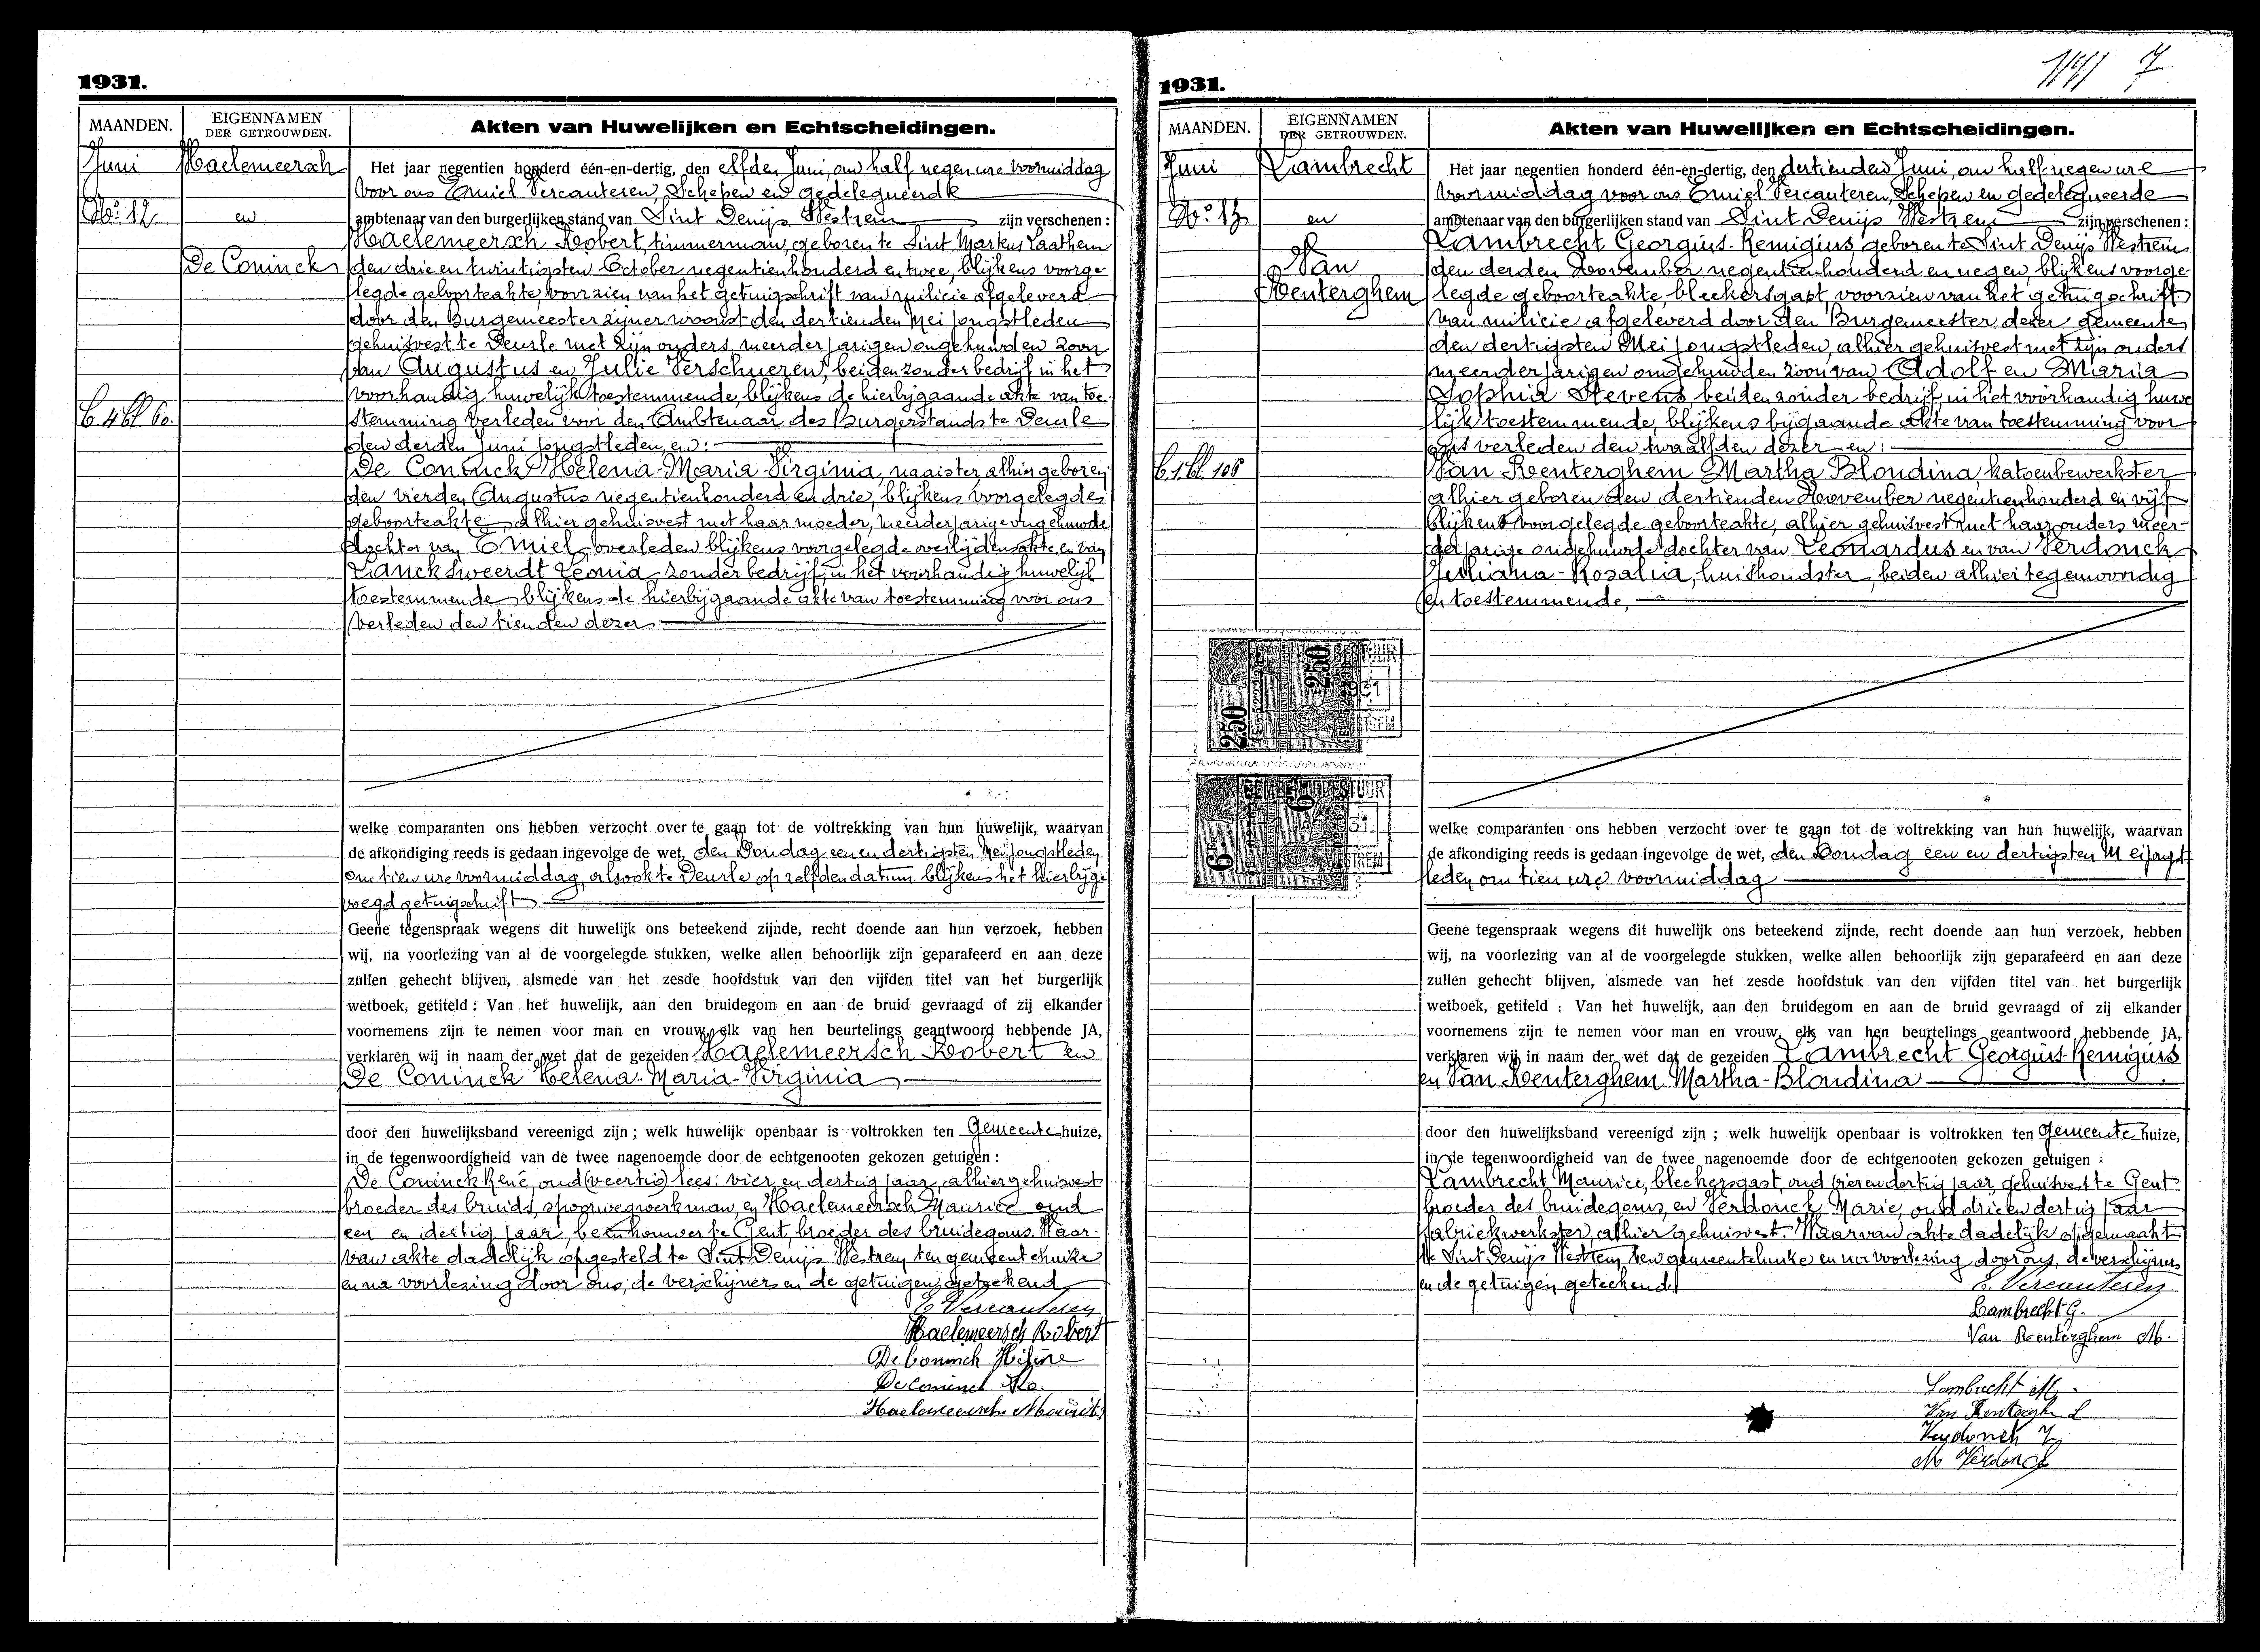 1931.
MAANDEN.
EIGENNAMEN
DER GETROUWDEN.
Akten van Huwelijken en Echtscheidingen.
Juni
No. 12
Haelemeersch
en
De Coninck
B. 4 bl. 60.
Het jaar negentien honderd één-en-dertig, den elfden Juni, om half negen ure voormiddag
voor ons Emiel Vercauteren, Schepen en gedelegueerde
ambtenaar van den burgerlijken stand van Sint Denijs Westrem zijn verschenen :
Haelemeersch Robert, timmerman, geboren te Sint Martens Laathem
den drie en twintigsten October negentienhonderd en twee, blijkens voorge-
legde geboorteakte, voorzien van het getuigschrift van milicie afgeleverd
door den Burgemeester zijner woonst den dertienden Mei jongstleden
gehuisvest te Deurle met zijn ouders, meerderjarigen ongehuwden zoon
van Augustus en Julie Verschueren, beiden zonder bedrijf in het
voorhandig huwelijk toestemmende, blijkens de hierbijgaande akte van toe-
stemming verleden voor den Ambtenaar des Burgerstands te Deurle
den derden Juni jongstleden, en:
De Coninck Helena-Maria-Virginia, naaister alhier geboren
den vierden Augustus negentienhonderd en drie, blijkens voorgelegde
geboorteakte, alhier gehuisvest met haar moeder, meerderjarige ongehuwde
dochter van Emiel overleden blijkens voorgelegde overlijdensakte, en van
Lancksweerdt Leonia, zonder bedrijf, in het voorhandig huwelijk
toestemmende blijkens de hierbijgaande akte van toestemming voor ons
verleden den tienden dezer
welke comparanten ons hebben verzocht over te gaan tot de voltrekking van hun huwelijk, waarvan
de afkondiging reeds is gedaan ingevolge de wet, den Zondag een en dertigsten Mei jongstleden
om tien ure voormiddag, alsook te Deurle op zelfden datum blijkens het hierbijge-
voegd getuigschrift
Geene tegenspraak wegens dit huwelijk ons beteekend zijnde, recht doende aan hun verzoek, hebben
wij, na voorlezing van al de voorgelegde stukken, welke allen behoorlijk zijn geparafeerd en aan deze
zullen gehecht blijven, alsmede van het zesde hoofdstuk van den vijfden titel van het burgerlijk
wetboek, getiteld : Van het huwelijk, aan den bruidegom en aan de bruid gevraagd of zij elkander
voornemens zijn te nemen voor man en vrouw, elk van hen beurtelings geantwoord hebbende JA,
verklaren wij in naam der wet dat de gezeiden Haelemeersch Robert en
De Coninck Helena-Maria-Virginia
door den huwelijksband vereenigd zijn ; welk huwelijk openbaar is voltrokken ten Gemeente huize,
in de tegenwoordigheid van de twee nagenoemde door de echtgenooten gekozen getuigen :
De Coninck René, oud (veertig) lees: vier en dertig jaar, alhier gehuisvest
broeder des bruids, spoorwegwerkman, en Haelemeersch Maurice oud
een en dertig jaar, beenhouwer te Gent, broeder des bruidegoms. Waar-
van akte dadelijk opgesteld te Sint Denijs Westrem ten gemeentehuize
en na voorlezing door ons, de verschijners en de getuigen, geteekend
E Vercauteren
Haelemeersch Robert
De Coninck Hélène
De Coninck Re.
Haelemeersch Maurits
1931.
7
MAANDEN.
EIGENNAMEN
DER GETROUWDEN.
Akten van Huwelijken en Echtscheidingen.
Juni
No. 13
Lambrecht
en
Van
Renterghem
B. 1 bl. 106
Het jaar negentien honderd één-en-dertig, den dertienden Juni, om half negen ure
voormiddag voor ons Emiel Vercauteren, Schepen en gedelegueerde
ambtenaar van den burgerlijken stand van Sint Denijs Westrem zijn verschenen :
Lambrecht Georgius-Remigius, geboren te Sint Denijs Westrem
den derden November negentienhonderd en negen, blijkens voorge-
legde geboorteakte, bleekersgast, voorzien van het getuigschrift
van milicie afgeleverd door den Burgemeester dezer gemeente
den dertigsten Mei jongstleden, alhier gehuisvest met zijn ouders
meerderjarigen ongehuwden zoon van Adolf en Maria
Sophia Stevens, beiden zonder bedrijf in het voorhandig huwe
lijk toestemmende, blijkens bijgaande akte van toestemming voor
ons verleden den twaalfden dezer en:
Van Renterghem Martha Blondina, katoenbewerkster
alhier geboren den dertienden November negentienhonderd en vijf
blijkens voorgelegde geboorteakte, alhier gehuisvest met haar ouders meer-
derjarige ongehuwde dochter van Leonardus en van Verdonck
Juliana-Rosalia, huishoudster, beiden alhier tegenwoordig
en toestemmende,
2.50
2.50
6 Fr
6
welke comparanten ons hebben verzocht over te gaan tot de voltrekking van hun huwelijk, waarvan
de afkondiging reeds is gedaan ingevolge de wet, den Zondag een en dertigsten Mei jongst
leden om tien ure voormiddag
Geene tegenspraak wegens dit huwelijk ons beteekend zijnde, recht doende aan hun verzoek, hebben
wij, na voorlezing van al de voorgelegde stukken, welke allen behoorlijk zijn geparafeerd en aan deze
zullen gehecht blijven, alsmede van het zesde hoofdstuk van den vijfden titel van het burgerlijk
wetboek, getiteld : Van het huwelijk, aan den bruidegom en aan de bruid gevraagd of zij elkander
voornemens zijn te nemen voor man en vrouw, elk van hen beurtelings geantwoord hebbende JA,
verklaren wij in naam der wet dat de gezeiden Lambrecht Georgius-Remigius
en Van Renterghem Martha-Blondina
door den huwelijksband vereenigd zijn ; welk huwelijk openbaar is voltrokken ten Gemeente huize,
in de tegenwoordigheid van de twee nagenoemde door de echtgenooten gekozen getuigen :
Lambrecht Maurice, bleekersgast, oud vierendertig jaar, gehuisvest te Gent
broeder des bruidegoms, en Verdonck Marie, oud drie en dertig jaar
fabriekwerkster, alhier gehuisvest. Waarvan akte dadelijk opgemaakt
te Sint Denijs Westrem, ten gemeentehuize en na voorlezing door ons, de verschijners
en de getuigen geteekend.
E. Vercauteren
Lambrecht G.
Van Renterghem M.
Lambrecht M.
Van Rentergh L
Verdonck J
M Verdonck